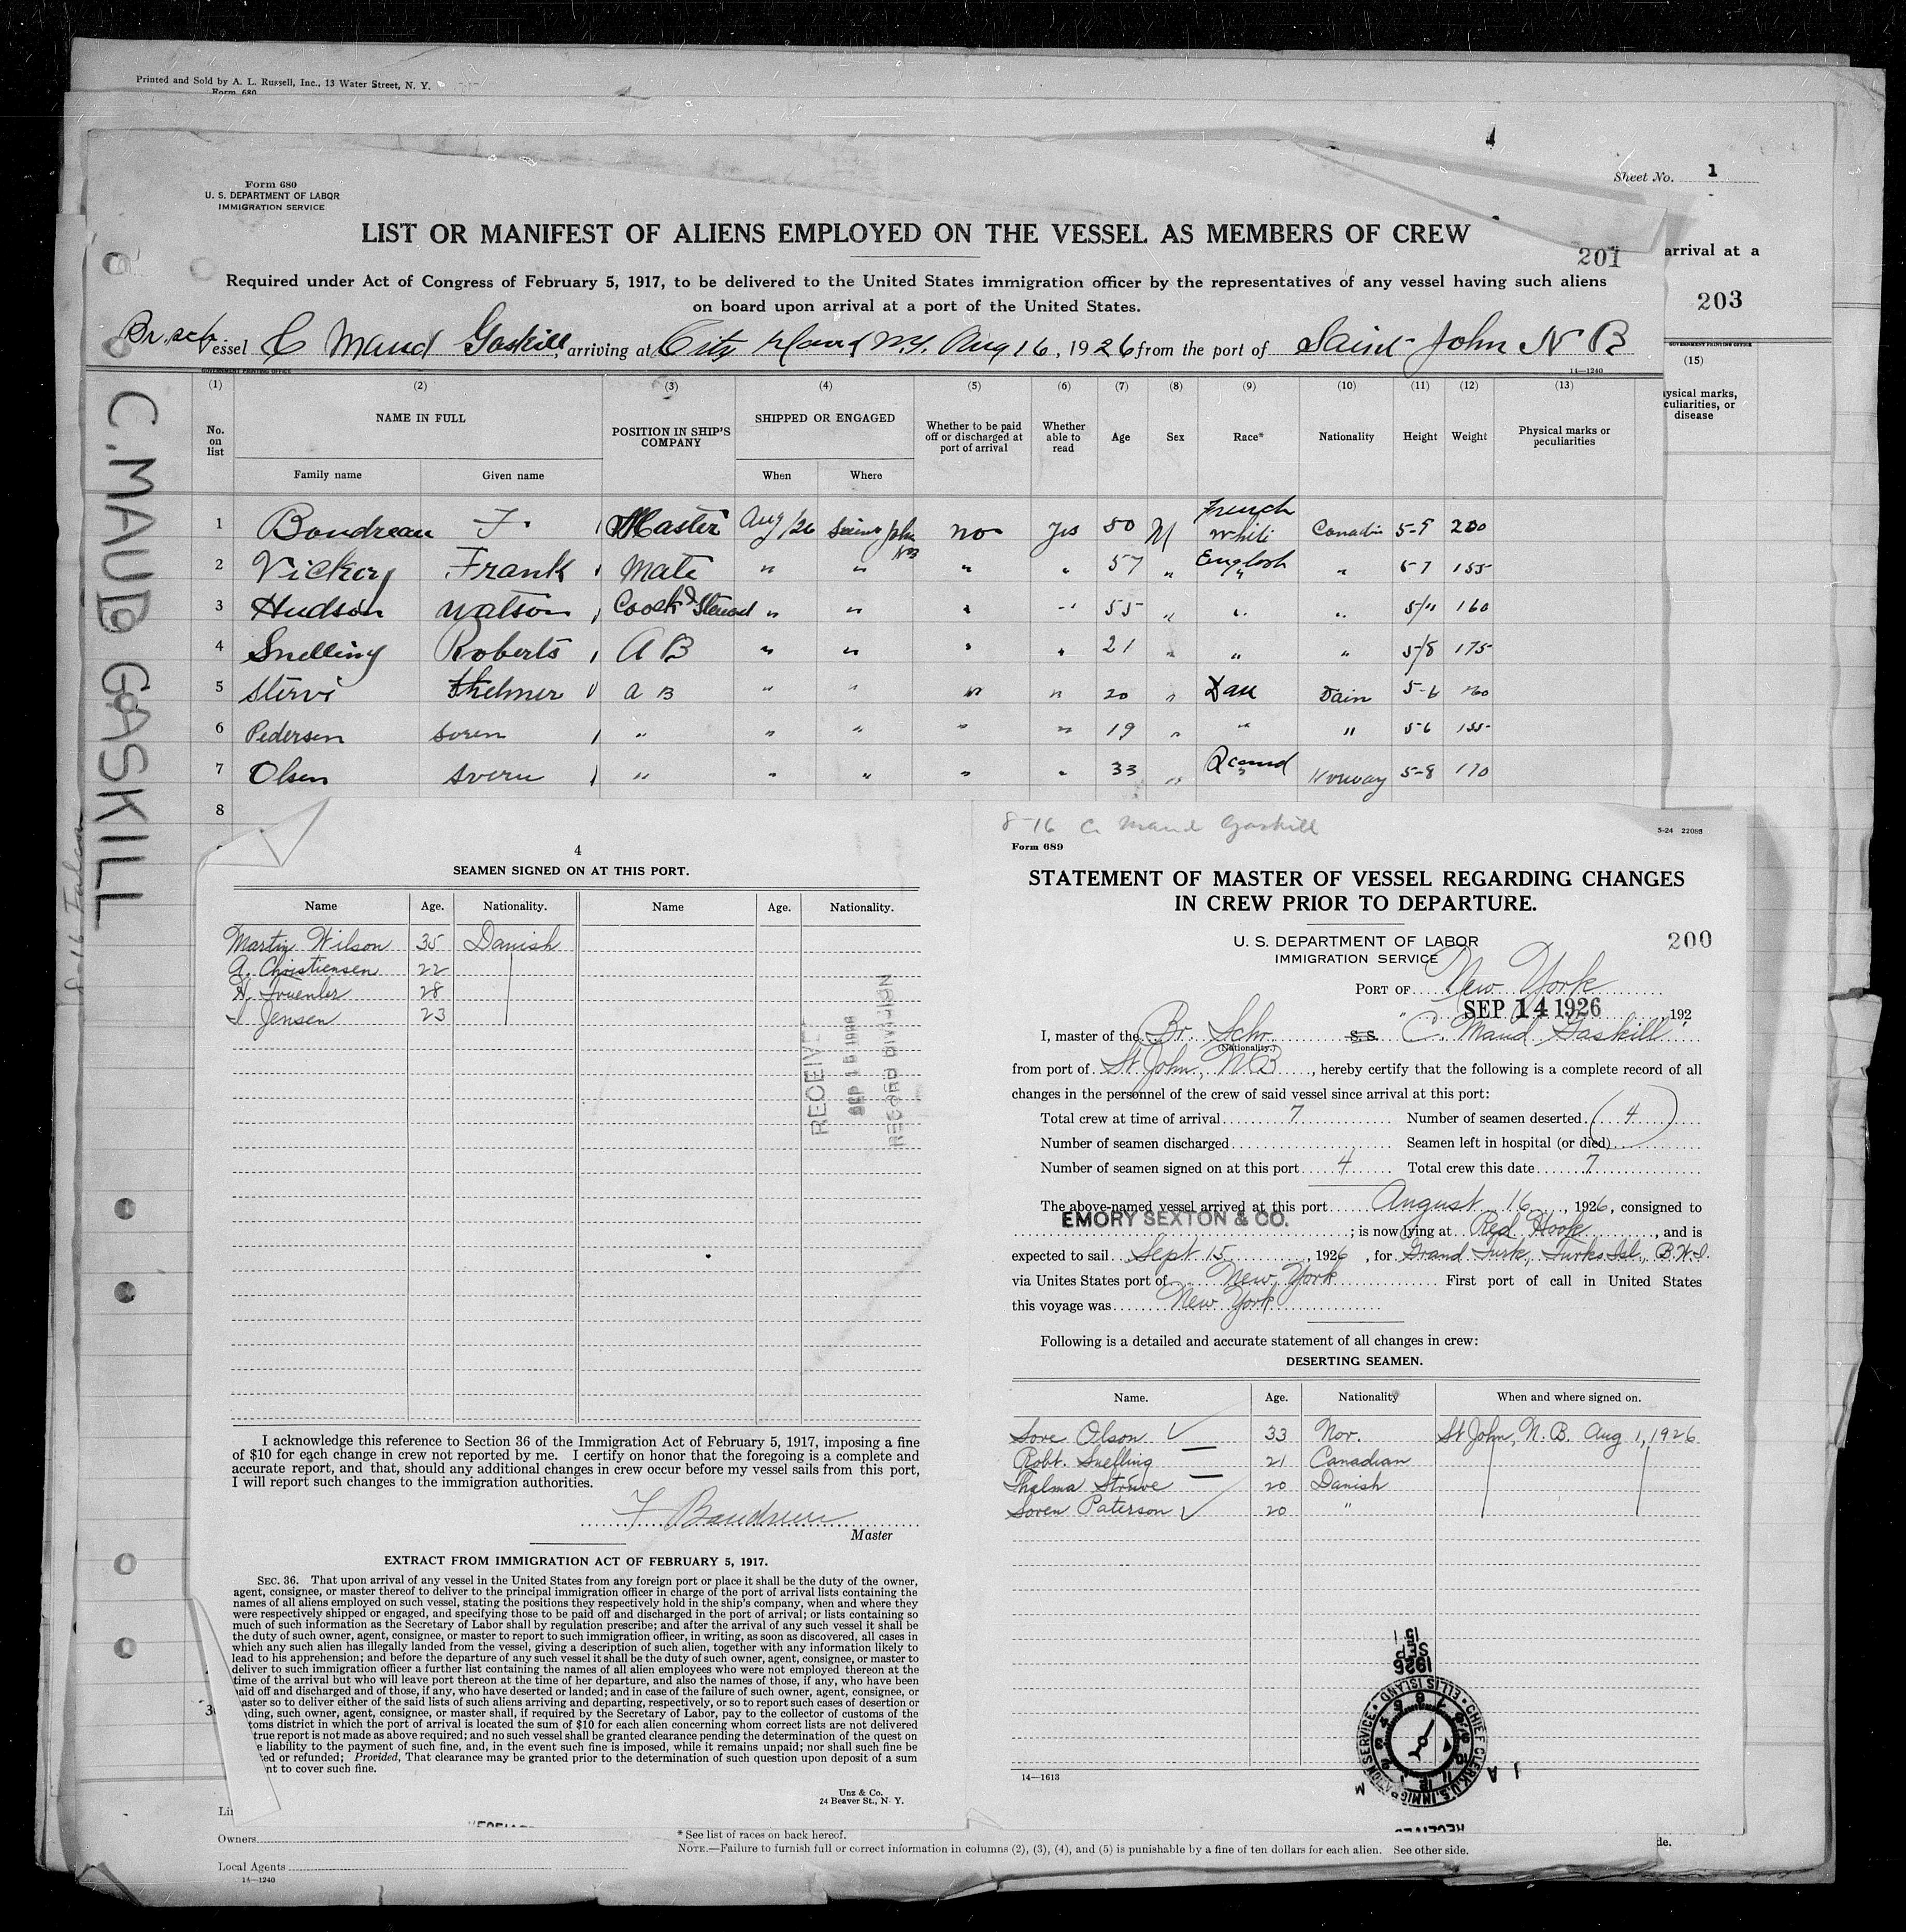 Printed and Sold by A. L. Russell, Inc., 13 Water Street, N. Y.
Form 680
Form 680
U. S. DEPARTMENT OF LABOR
IMMIGRATION SERVICE
Sheet No. 1
LIST OR MANIFEST OF ALIENS EMPLOYED ON THE VESSEL AS MEMBERS OF CREW
201
arrival at a
Required under Act of Congress of February 5, 1917, to be delivered to the United States immigration officer by the representatives of any vessel having such aliens
on board upon arrival at a port of the United States.
203
Br. sch. Vessel C Maud Gaskill, arriving at City Island N.Y. Aug 16, 1926 from the port of Saint John N B
GOVERNMENT PRINTING OFFICE
14—1240
GOVERNMENT PRINTING OFFICE
(1) (2) (3) (4) (5) (6) (7) (8) (9) (10) (11) (12) (13)
(15)
No. on list
NAME IN FULL
Family name Given name
POSITION IN SHIP'S COMPANY
SHIPPED OR ENGAGED
When Where
Whether to be paid off or discharged at port of arrival
Whether able to read
Age Sex Race* Nationality Height Weight
Physical marks or peculiarities
ysical marks, culiarities, or disease
1 Boudreau F. Master Aug/26 Saint John NB no Yes 50 M French White Canadin 5-9 200
2 Vickery Frank Mate " " " " 57 " English " " 5 7 155
3 Hudson Watson Cook & Steward " " " " 55 " " " 5/11 160
4 Snelling Roberts A B " " " " 21 " " " 5/8 175
5 Stervi Thelmer A B " " " " 20 " Dan Dain 5-6 160
6 Pedersen Soren " " " " " 19 " " " 5 6 155
7 Olsen Svern " " " " " 33 " Scand " Norway 5-8 170
8
C. MAUD GASKILL
8-16
4
SEAMEN SIGNED ON AT THIS PORT.
Name Age. Nationality. Name Age. Nationality.
Martin Wilson 35 Danish
A. Christiensen 22
H. 28
Jensen 23
RECEIVED
SEP 15 1926
RECORD DIVISION
I acknowledge this reference to Section 36 of the Immigration Act of February 5, 1917, imposing a fine
of $10 for each change in crew not reported by me. I certify on honor that the foregoing is a complete and
accurate report, and that, should any additional changes in crew occur before my vessel sails from this port,
I will report such changes to the immigration authorities.
F Boudreau
Master
EXTRACT FROM IMMIGRATION ACT OF FEBRUARY 5, 1917.
SEC. 36. That upon arrival of any vessel in the United States from any foreign port or place it shall be the duty of the owner,
agent, consignee, or master thereof to deliver to the principal immigration officer in charge of the port of arrival lists containing the
names of all aliens employed on such vessel, stating the positions they respectively hold in the ship's company, when and where they
were respectively shipped or engaged, and specifying those to be paid off and discharged in the port of arrival; or lists containing so
much of such information as the Secretary of Labor shall by regulation prescribe; and after the arrival of any such vessel it shall be
the duty of such owner, agent, consignee, or master to report to such immigration officer, in writing, as soon as discovered, all cases in
which any such alien has illegally landed from the vessel, giving a description of such alien, together with any information likely to
lead to his apprehension; and before the departure of any such vessel it shall be the duty of such owner, agent, consignee, or master to
deliver to such immigration officer a further list containing the names of all alien employees who were not employed thereon at the
time of the arrival but who will leave port thereon at the time of her departure, and also the names of those, if any, who have been
aid off and discharged and of those, if any, who have deserted or landed; and in case of the failure of such owner, agent, consignee, or
aster so to deliver either of the said lists of such aliens arriving and departing, respectively, or so to report such cases of desertion or
nding, such owner, agent, consignee, or master shall, if required by the Secretary of Labor, pay to the collector of customs of the
toms district in which the port of arrival is located the sum of $10 for each alien concerning whom correct lists are not delivered
true report is not made as above required; and no such vessel shall be granted clearance pending the determination of the quest on
e liability to the payment of such fine, and, in the event such fine is imposed, while it remains unpaid; nor shall such fine be
ted or refunded; Provided, That clearance may be granted prior to the determination of such question upon deposit of a sum
nt to cover such fine.
Unz & Co.
24 Beaver St., N. Y.
8-16 C. Maud Gaskill
5-24 22088
Form 689
STATEMENT OF MASTER OF VESSEL REGARDING CHANGES
IN CREW PRIOR TO DEPARTURE.
U. S. DEPARTMENT OF LABOR
IMMIGRATION SERVICE
200
PORT OF New York
SEP 14 1926, 192
I, master of the Br. Schr. S. S. C. Maud Gaskill
(Nationality.)
from port of St John, NB, hereby certify that the following is a complete record of all
changes in the personnel of the crew of said vessel since arrival at this port:
Total crew at time of arrival 7 Number of seamen deserted (4)
Number of seamen discharged Seamen left in hospital (or died)
Number of seamen signed on at this port 4 Total crew this date 7
The above-named vessel arrived at this port August 16, 1926, consigned to
EMORY SEXTON & CO.; is now lying at Red Hook, and is
expected to sail Sept 15, 1926, for Grand Turk, Turks Isl., B.W.I.
via Unites States port of New York First port of call in United States
this voyage was New York
Following is a detailed and accurate statement of all changes in crew:
DESERTING SEAMEN.
Name. Age. Nationality When and where signed on.
Sore Olson 33 Nor. St John, N.B. Aug 1, 1926
Robt. Snelling 21 Canadian
Thalma Struve 20 Danish
Soren Paterson 20 "
SEP 15 1926
CHIEF CLERK, U.S. IMMIGRATION SERVICE • ELLIS ISLAND
14—1613
Owners
Local Agents
14—1240
* See list of races on back hereof.
NOTE.—Failure to furnish full or correct information in columns (2), (3), (4), and (5) is punishable by a fine of ten dollars for each alien. See other side.
de.